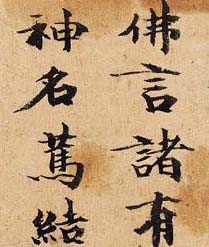 佛言諸有
神名篤結